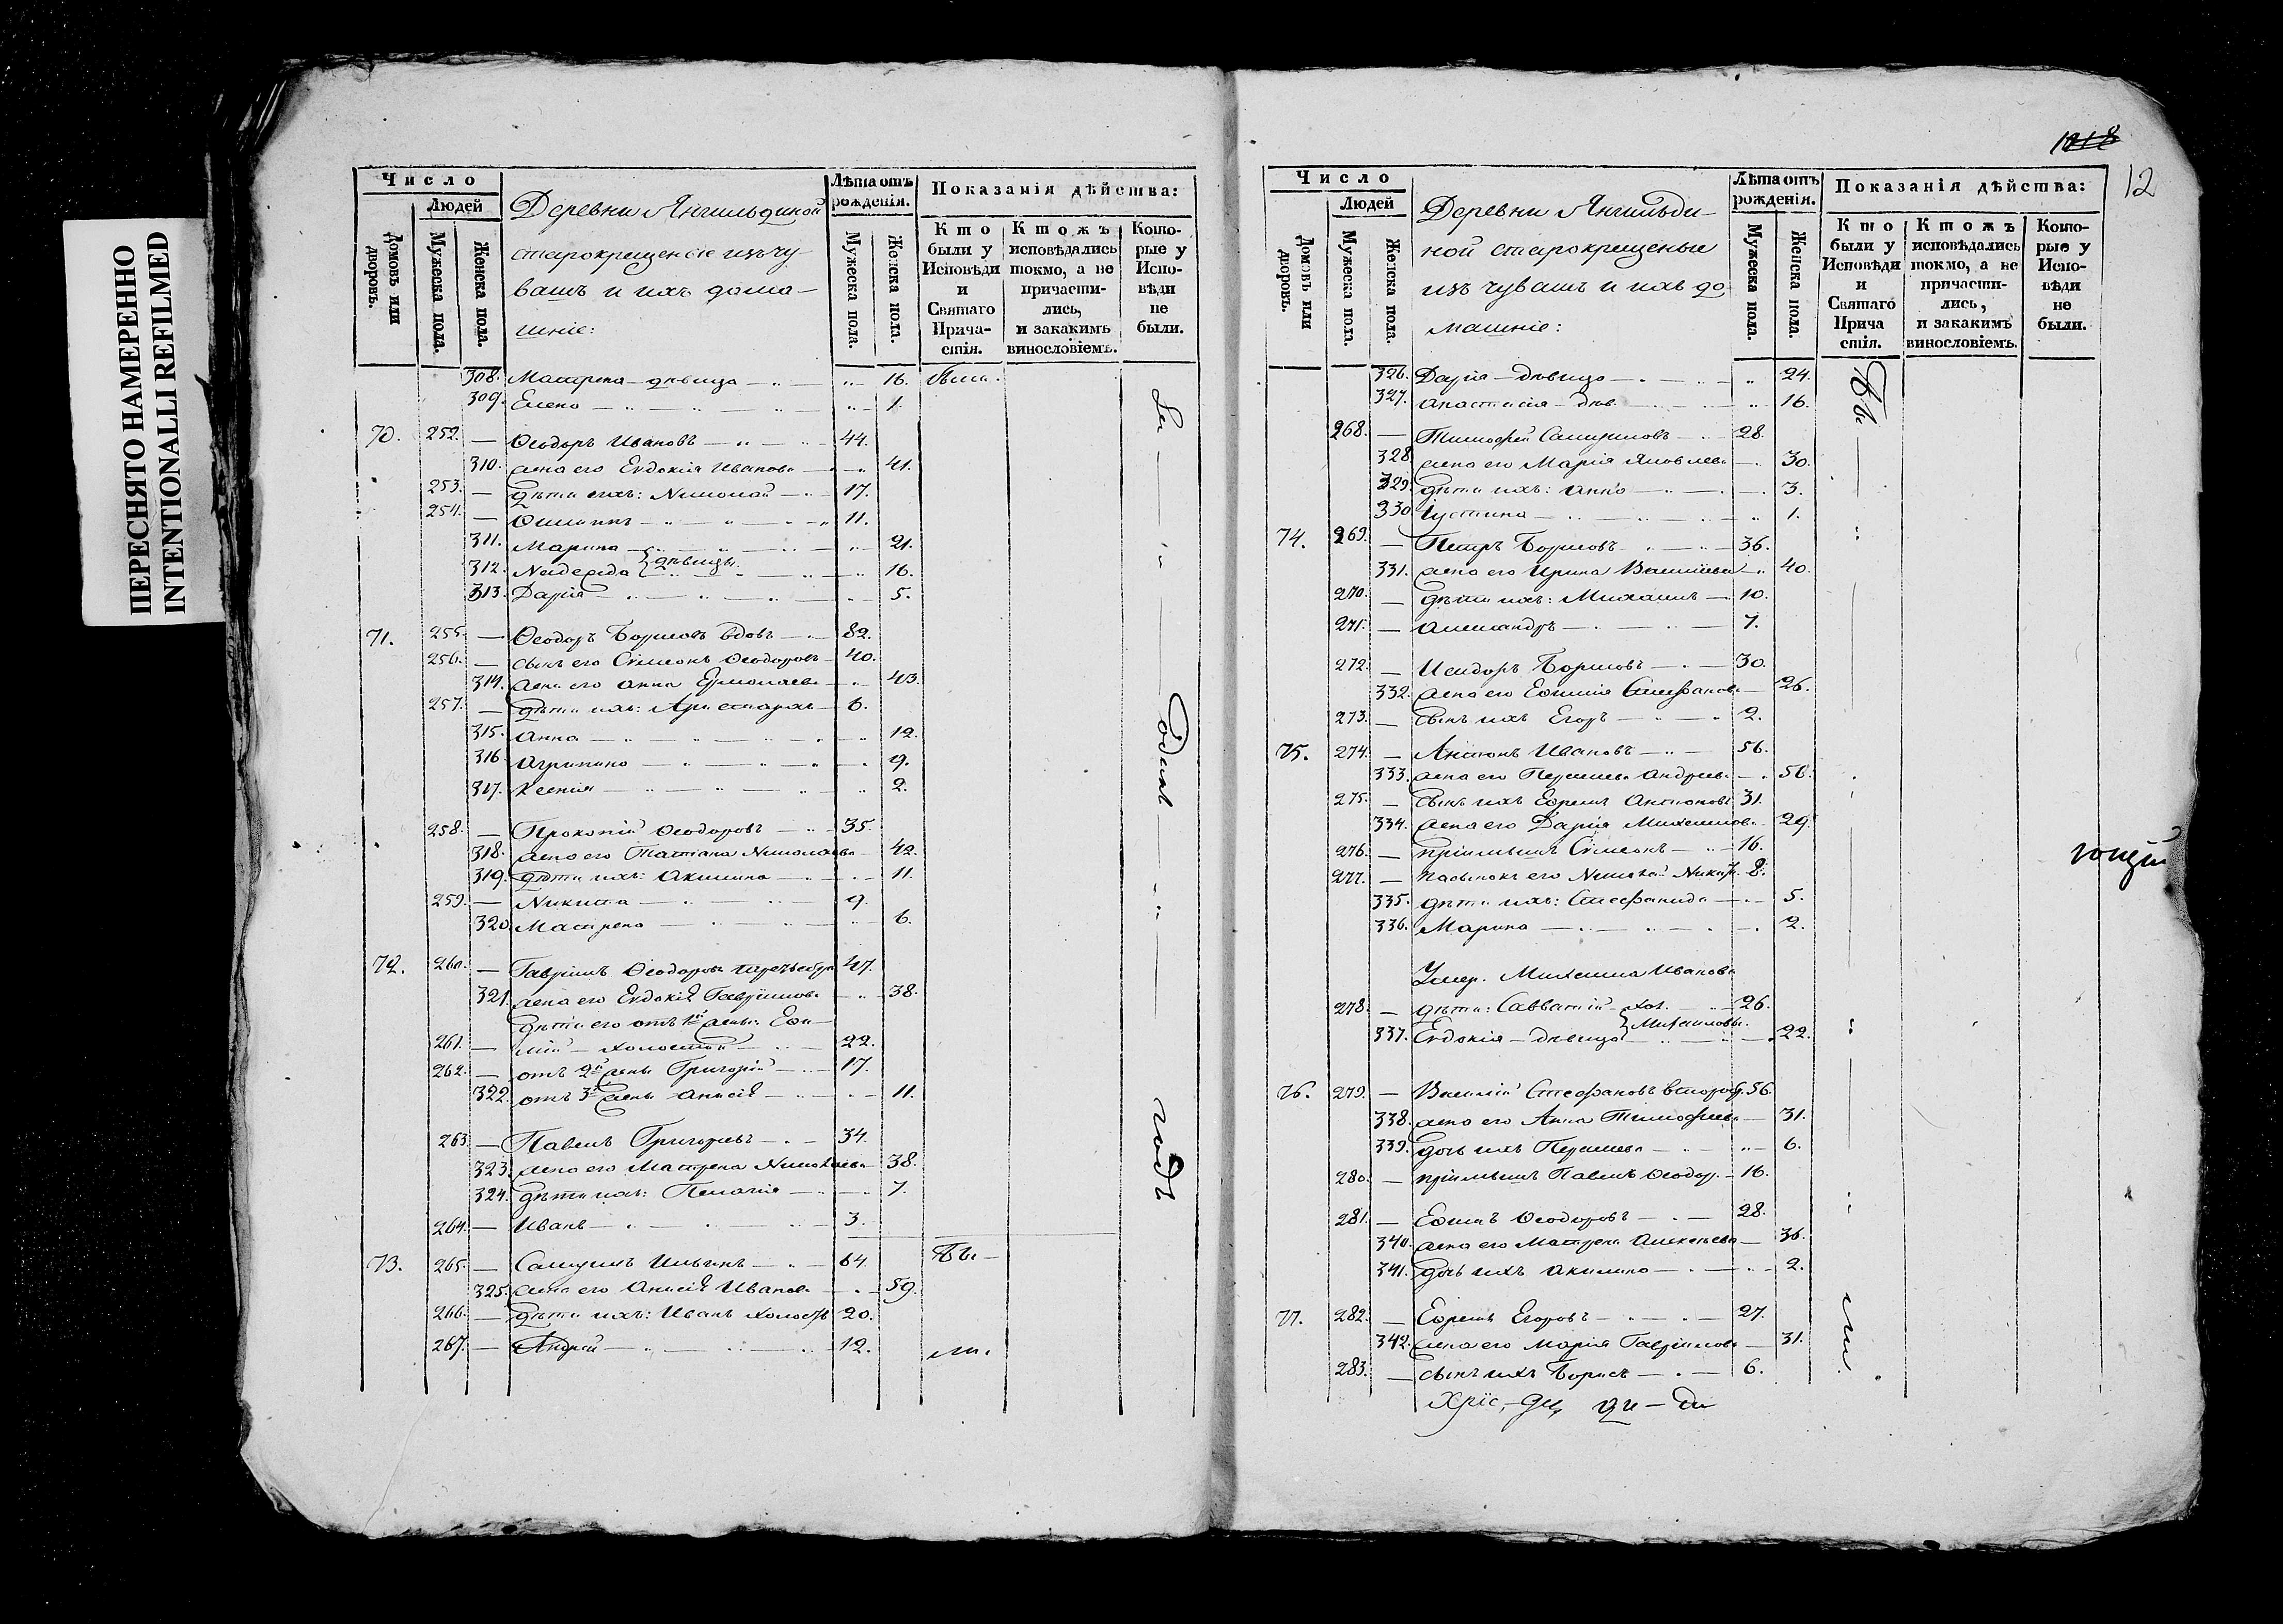 ПЕРЕСНЯТО НАМЕРЕННО
INTENTIONALLI REFILMED
Число
Людей
Домовъ или дворовъ.
Мужеска пола.
Женска пола.
Деревни Янгильдиной
старокрещеные изъ чу-
вашъ и ихъ дома-
шніе:
Лѣта отъ рожденія.
Мужеска пола.
Женска пола.
Показанія дѣйства:
Кто были у Исповѣди и Святаго Прича-стія.
Ктожъ исповѣдались токмо, а не причасти-лись, и закакимъ винословіемъ.
Кото-рые у Испо-вѣди не были.
308. Матрена – дѣвица 16.
309. Елена 1.
70. 252. — Ѳеодоръ Ивановъ 44.
310. жена его Евдокія Иванова 41.
253. — дѣти ихъ: Николай 17.
254. — 11.
311. Марина 21.
312. Надежда } дѣвицы 16.
313. Дарія 5.
71. 255. — Ѳеодоръ Борисовъ вдовъ 82.
256. — сынъ его Сѵмеонъ Ѳеодоровъ 40.
314. жена его Анна Ермолаева 43.
257. — дѣти ихъ: Аристархъ 6.
315. Анна 12.
316. Агрипина 9.
317. Ксенія 2.
258. — Прокопій Ѳеодоровъ 35.
318. жена его Татіана Николаева 42.
319. дѣти ихъ: Акилина 11.
259. — Никита 9.
320. Матрена 6.
72. 260. — Гавріилъ Ѳеодоровъ 47.
321. жена его Евдокія Гавріилова 38.
дѣти его отъ 1й жены: Евѳи-
261. — мій – холостой 22.
262. — отъ 2й жены Григорій 17.
322. отъ 3й жены Анисія 11.
263. — Павелъ Григорьевъ 34.
323. жена его Матрена Николаева 38.
324. дѣти ихъ: Пелагія 7.
264. — Иванъ 3.
73. 265. — Самуилъ Ильинъ 64.
325. жена его Анисія Иванова 59.
266. — дѣти ихъ: Иванъ холостъ 20.
267. — Андрей 12.
Бы-
ли.
одинъ
годъ
12
Число
Людей
Домовъ или дворовъ.
Мужеска пола.
Женска пола.
Деревни Янгильди-
ной старокрещеные
изъ чувашъ и ихъ до
машніе:
Лѣта отъ рожденія.
Мужеска пола.
Женска пола.
Показанія дѣйства:
Кто были у Исповѣди и Святаго Прича стія.
Ктожъ исповѣдались токмо, а не причасти-лись, и закакимъ винословіемъ.
Кото-рые у Испо-вѣди не были.
326. Дарія – дѣвица 24.
327. Анастасія – дѣв. 16.
268. — Тимоѳей Самуиловъ 28.
328. жена его Марія Яковлева 30.
329. дѣти ихъ: Анна 3.
330. Іустина 1.
74. 269. — Петръ Борисовъ 36.
331. жена его Ирина Васильева 40.
270. — дѣти ихъ: Михаилъ 10.
271. — Александръ 7.
272. — Исидоръ Борисовъ 30.
332. жена его Евѳимія Стефанова 26.
273. — сынъ ихъ Егоръ 2.
75. 274. — Антонъ Ивановъ 56.
333. жена его Параскева Андреева 56.
275. — сынъ ихъ Ефремъ Антоновъ 31.
334. жена его Дарія Михаилова 29.
276. — пріимышъ Сѵмеонъ 16.
277. — пасынокъ его Николай 8.
335. дѣти ихъ: Стефанида 5.
336. Марина 2.
Умер. Михаила Иванова
278. — дѣти: Савватій – хол. 26.
337. Евдокія – дѣвица } Михаиловы. 22.
76. 279. — Василій Стефановъ второбр. 56.
338. жена его Анна Тимоѳеева 31.
339. дочь ихъ Параскева 6.
280. — пріимышъ Павелъ Ѳеодор. 16.
281. — Евѳимъ Ѳеодоровъ 28.
340. жена его Матрена Алексеева 36.
341. дочь ихъ Акилина 2.
77. 282. — Ефремъ Егоровъ 27.
342. жена его Марія Гавріилова 31.
283. — сынъ ихъ Борисъ 6.
Бы
ли.
ющій